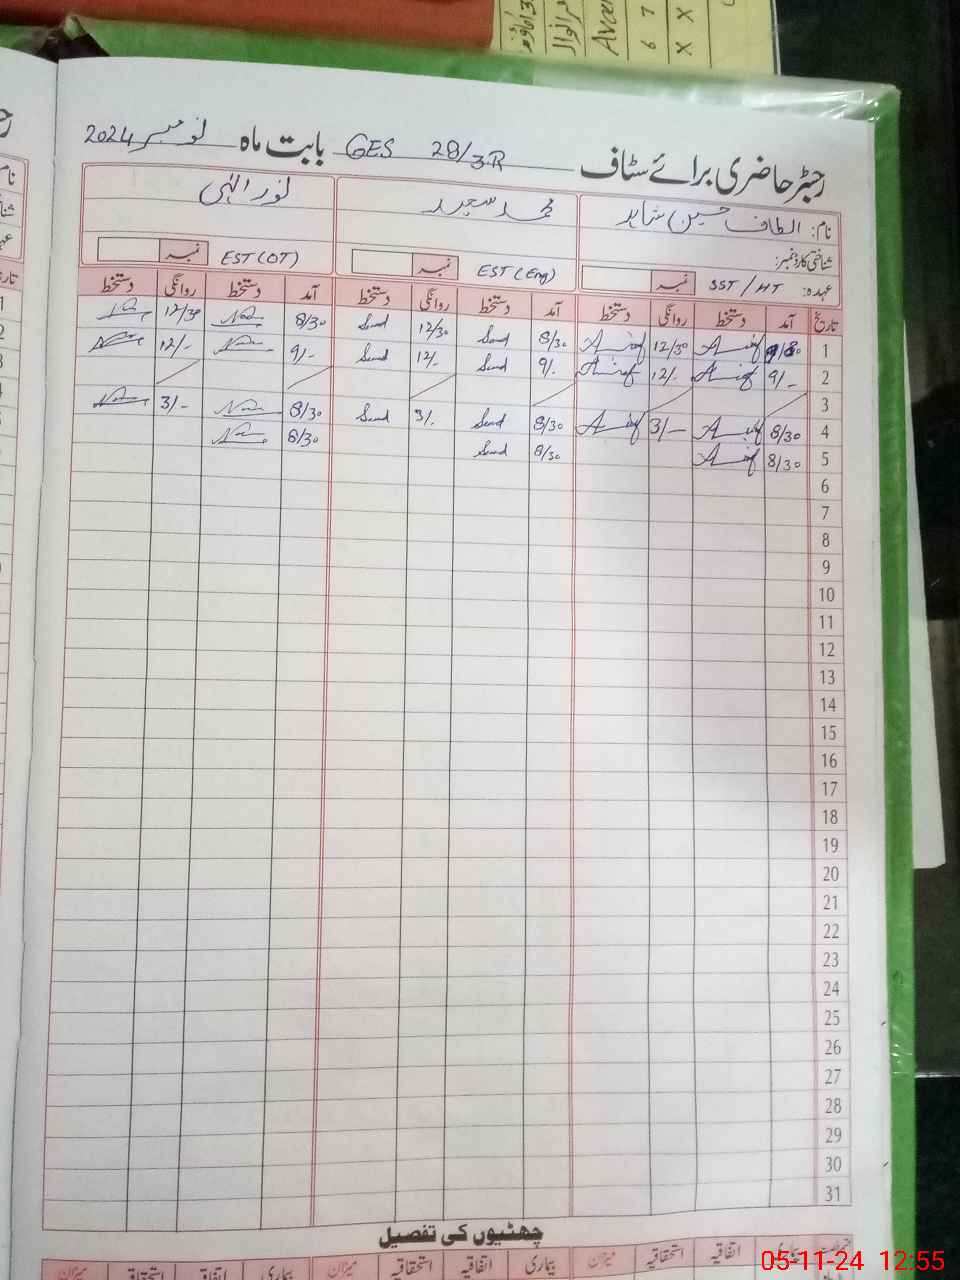 رجسٹر حاضری برائے سٹاف GES 28/3R بابت ماہ نومبر 2024
نام: الطاف حسین شاہد محمد سعید نور الہٰی
شناختی کارڈ نمبر:
عہدہ: SST / HT نمبر EST (Eng) نمبر EST (OT) نمبر
تاریخ آمد دستخط روانگی دستخط آمد دستخط روانگی دستخط آمد دستخط روانگی دستخط
1 12/30 8/30 12/30 8/30 12/30
2 9/- 12/- 9/- 12/- 9/- 12/-
3
4 8/30 3/- 8/30 3/- 8/30 3/-
5 8/30 8/30 8/30
6
7
8
9
10
11
12
13
14
15
16
17
18
19
20
21
22
23
24
25
26
27
28
29
30
31
چھٹیوں کی تفصیل
بیماری اتفاقیہ استحقاقیہ میزان بیماری اتفاقیہ استحقاقیہ میزان بیماری اتفاقیہ استحقاقیہ میزان
05-11-24 12:55